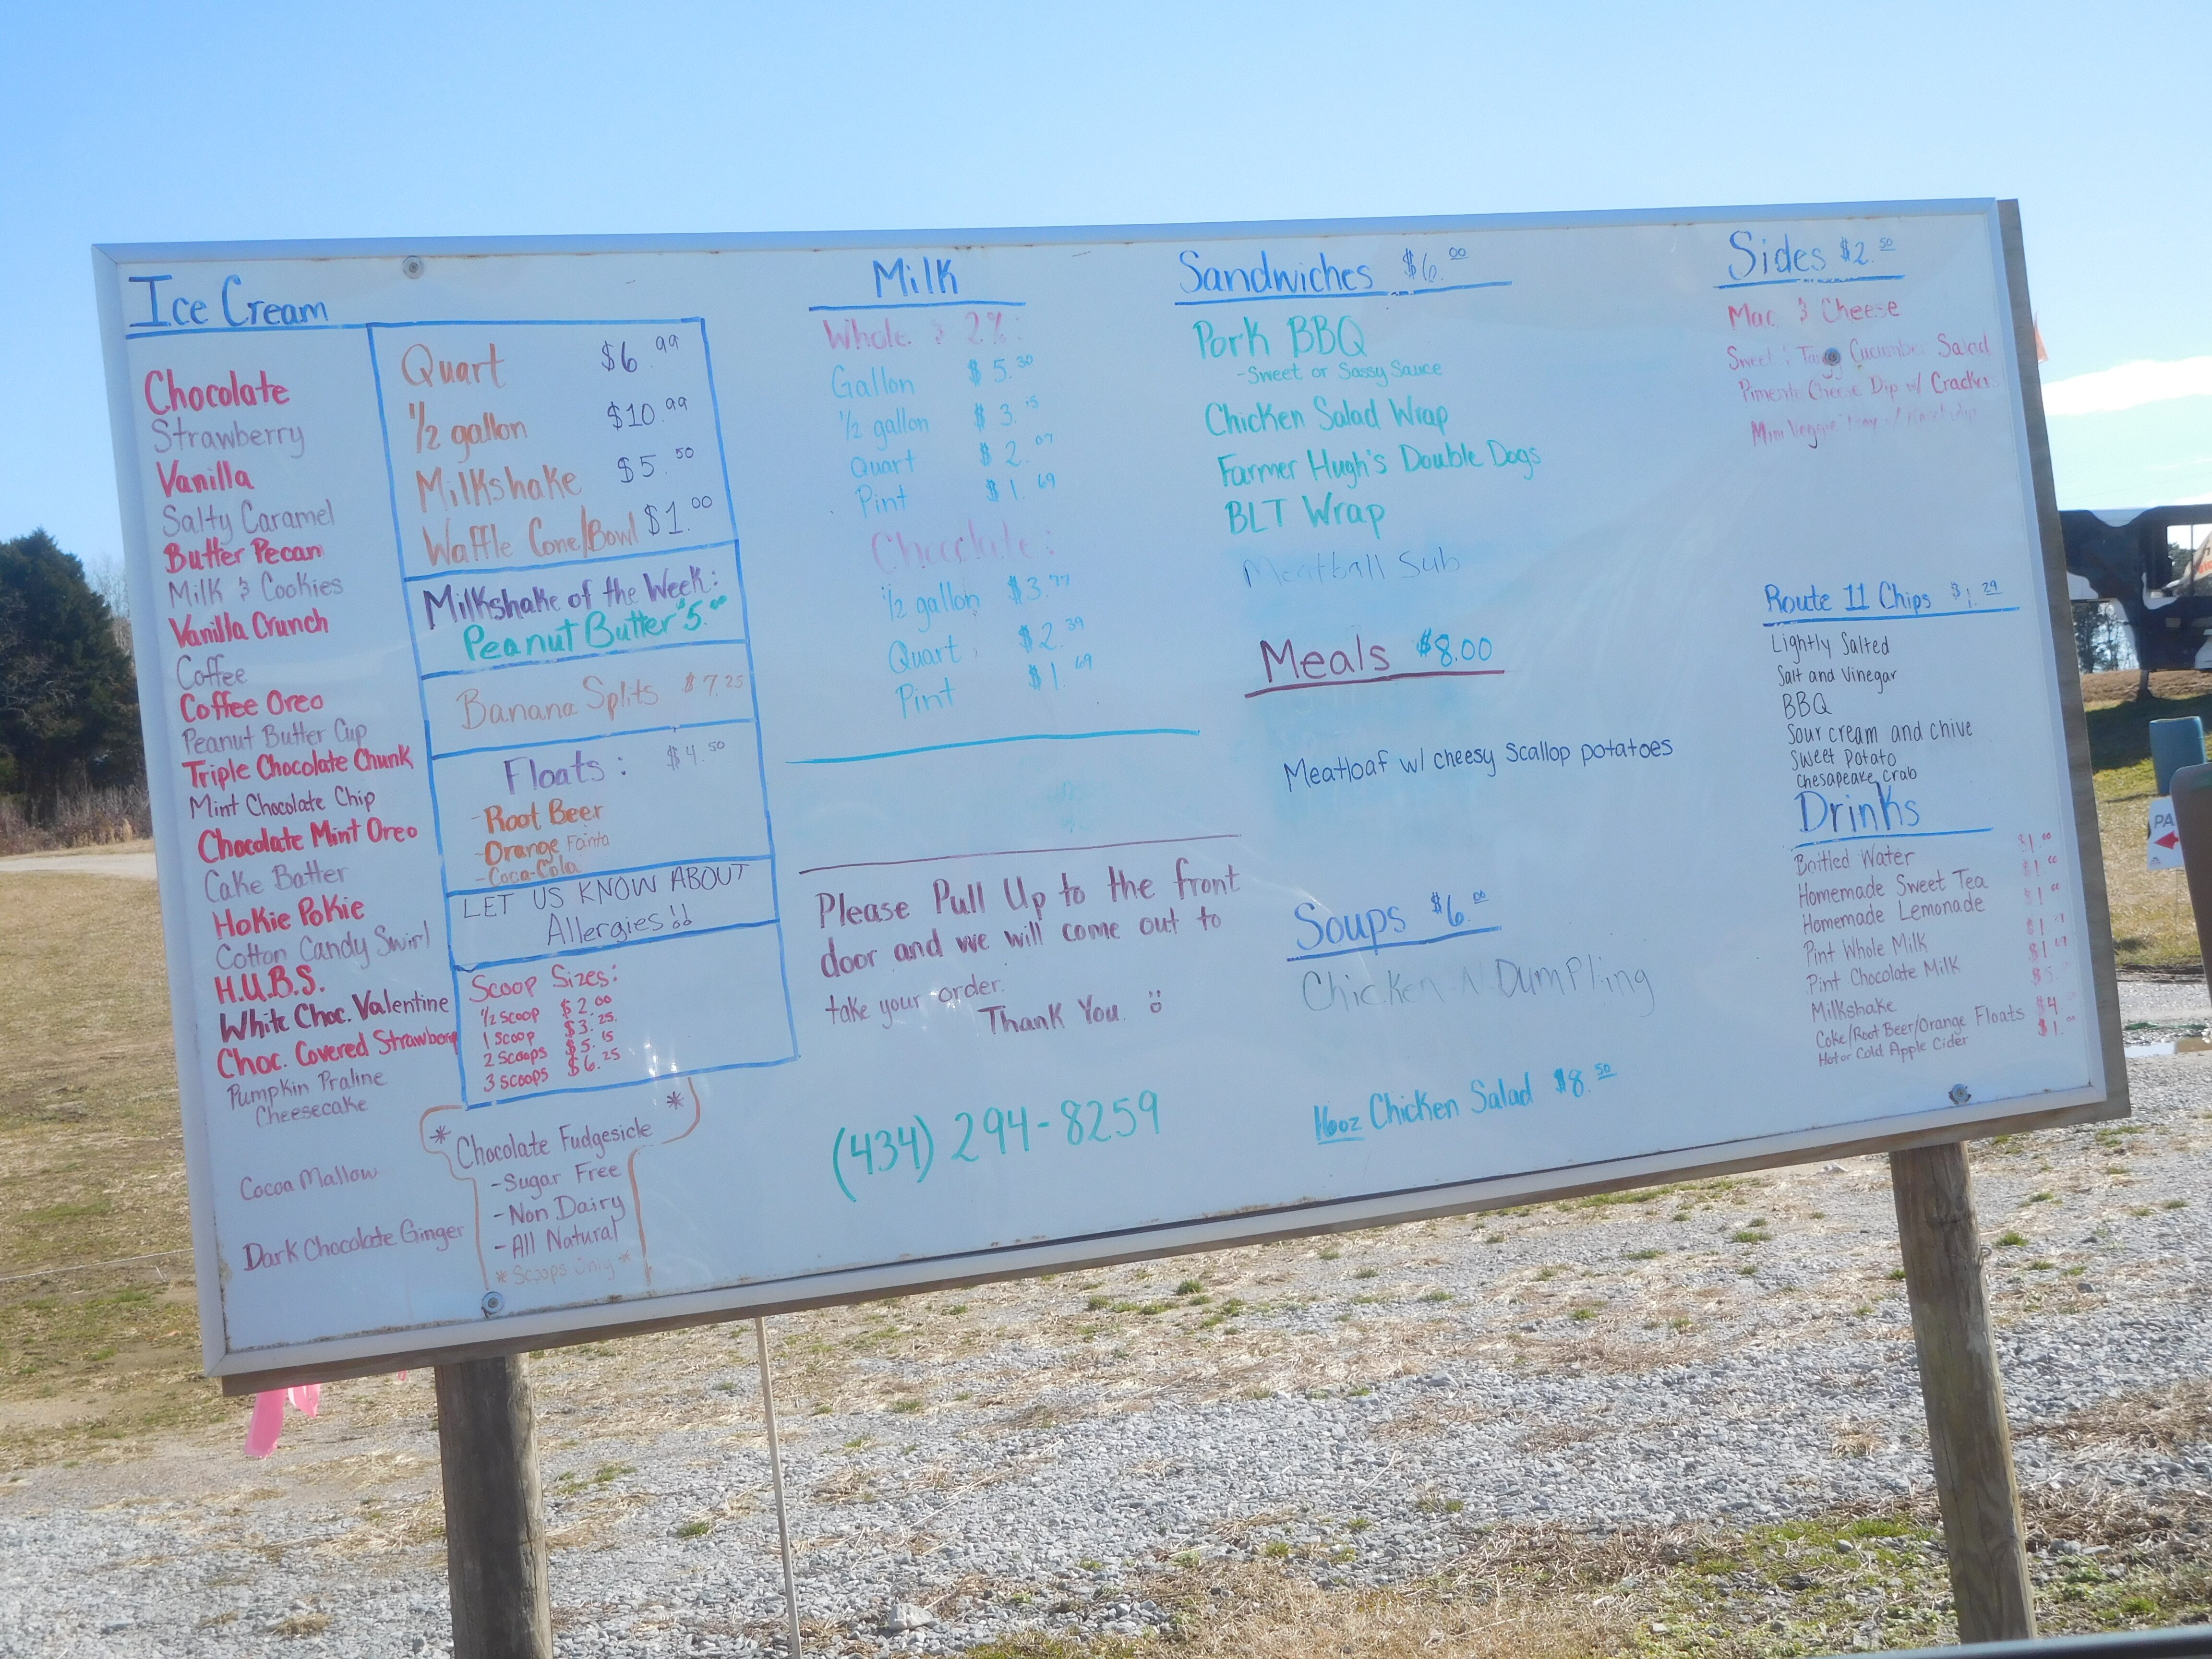 Ice Cream
Chocolate
Strawberry
Vanilla
Salty Caramel
Butter Pecan
Milk & Cookies
Vanilla Crunch
Coffee
Coffee Oreo
Peanut Butter Cup
Triple Chocolate Chunk
Mint Chocolate Chip
Chocolate Mint Oreo
Cake Batter
Hokie Pokie
Cotton Candy Swirl
H.U.B.S.
White Choc. Valentine
Choc. Covered Strawberry
Pumpkin Praline
Cheesecake
Cocoa Mallow
Dark Chocolate Ginger
Quart $6.99
1/2 gallon $10.99
Milkshake $5.50
Waffle Cone/Bowl $1.00
Milkshake of the Week:
Peanut Butter $5.00
Banana Splits $7.25
Floats: $4.50
-Root Beer
-Orange Fainta
-Coca-Cola
LET US KNOW ABOUT
Allergies!!
Scoop Sizes:
1/2 scoop $2.00
1 scoop $3.25
2 scoops $5.15
3 scoops $6.25
* *
Chocolate Fudgesicle
-Sugar Free
-Non Dairy
-All Natural
*Scoops Only*
Milk
Whole & 2%:
Gallon $5.30
1/2 gallon $3.
Quart $2.07
Pint $1.69
Chocolate:
1/2 gallon $3.77
Quart $2.39
Pint $1.69
Please Pull Up to the front
door and we will come out to
take your order.
Thank You.
(434) 294-8259
Sandwiches $6.00
Pork BBQ
-Sweet or Sassy Sauce
Chicken Salad Wrap
Farmer Hugh's Double Dogs
BLT Wrap
Meatball Sub
Meals $8.00
Meatloaf w/ cheesy scallop potatoes
Soups $6.00
Chicken-N-Dumpling
16oz Chicken Salad $8.50
Sides $2.50
Mac & Cheese
Sweet & Tangy Cucumber Salad
Pimento Cheese Dip w/ Crackers
Mini Veggie
Route 11 Chips $1.29
Lightly Salted
Salt and Vinegar
BBQ
Sour cream and chive
Sweet Potato
Chesapeake Crab
Drinks
Bottled Water $1.00
Homemade Sweet Tea $1.00
Homemade Lemonade $1.00
Pint Whole Milk $1.
Pint Chocolate Milk $1.
Milkshake $5.
Coke/Root Beer/Orange Floats $4
Hot or Cold Apple Cider $1.
PA